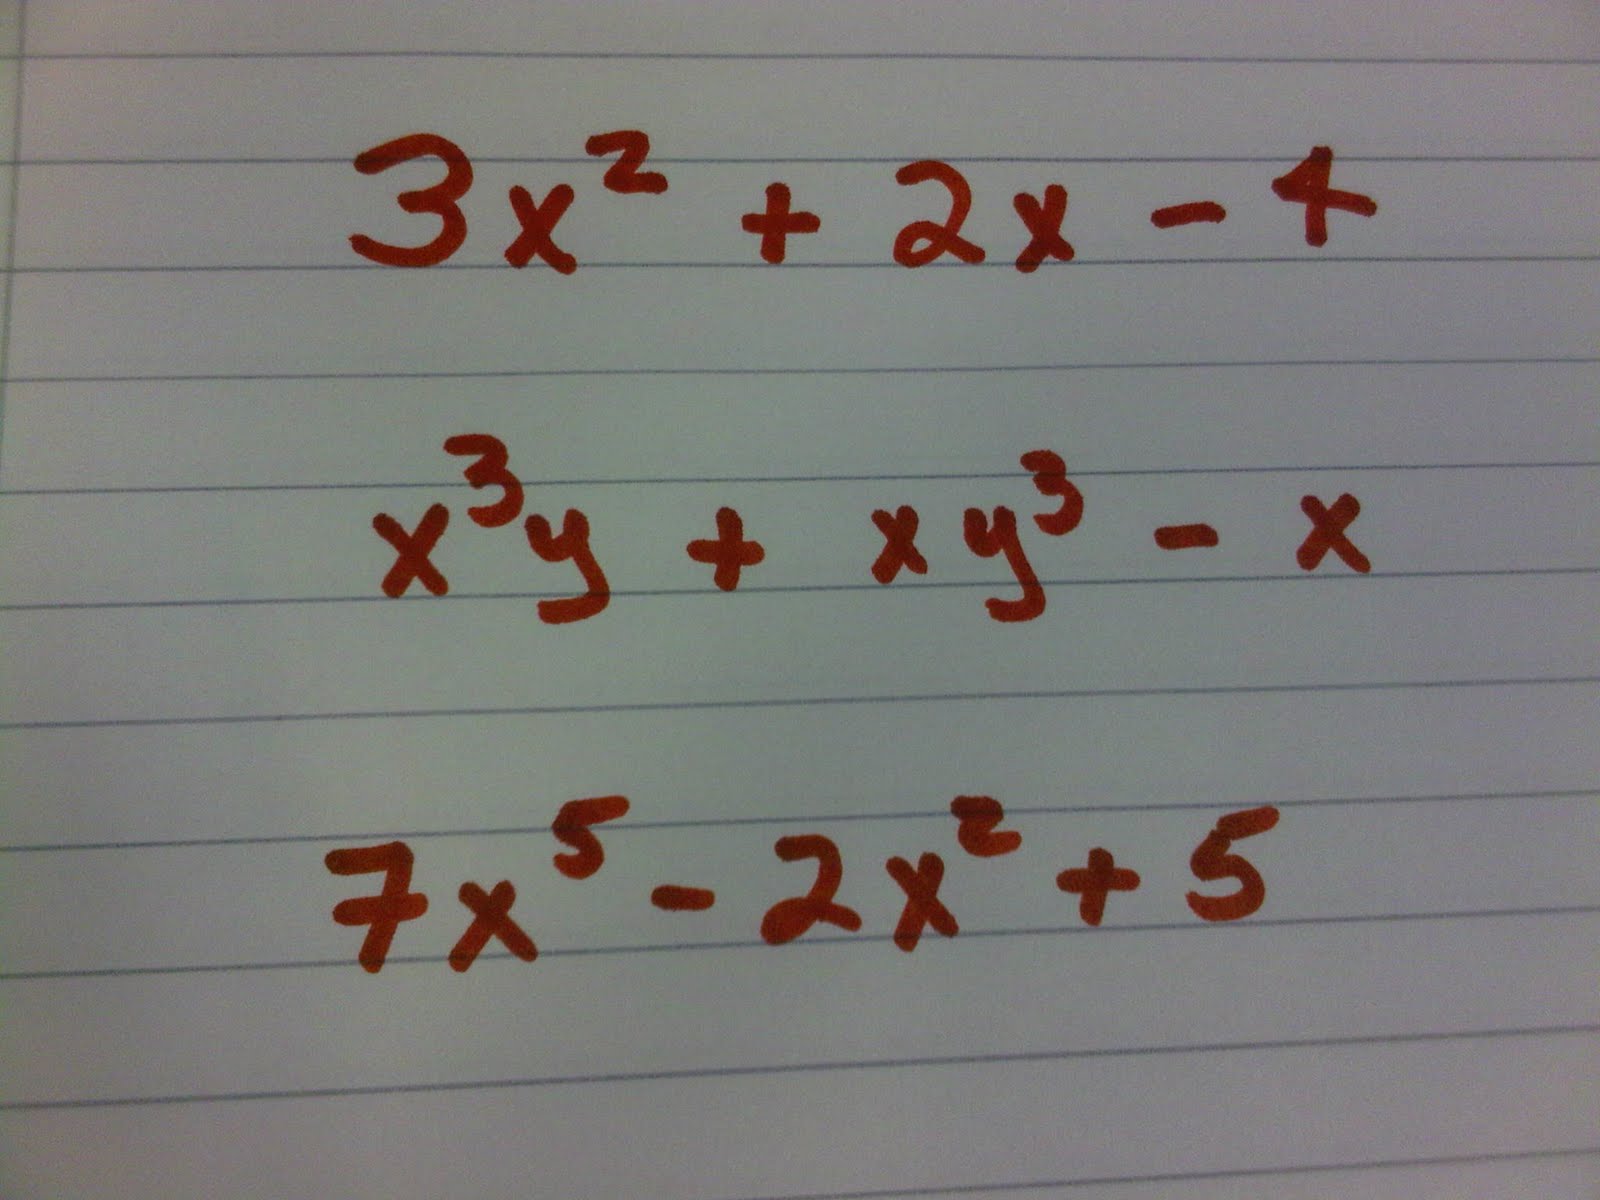 3x² + 2x - 4
x³y + xy³ - x
7x⁵ - 2x² + 5